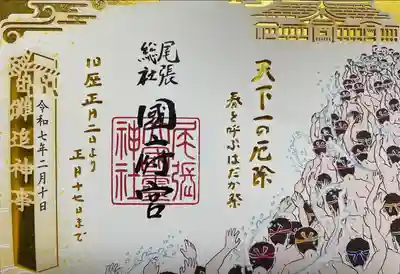 天下一の厄除
春を呼ぶはだか祭
尾張
総社
國府宮
尾張國府宮神社
旧正月二日より
正月十七日まで
令和七年二月十日
儺追神事